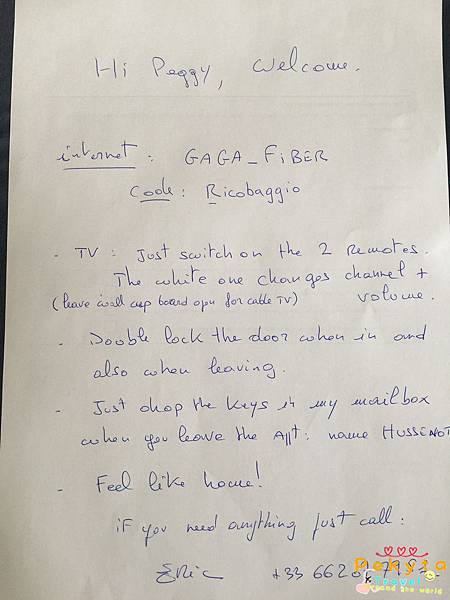 Hi Peggy, Welcome.
internet: GAGA_FiBER
Code: Ricobaggio
- TV: Just switch on the 2 Remotes.
The white one changes channel +
(leave wall cup board open for cable TV) volume.
- Double lock the door when in and
also when leaving.
- Just drop the keys in my mailbox
when you leave the Apt: name HUSSENOT
- Feel like home!
iF you need anything just call:
Eric +33 662
Pekyta
Travel
around the world